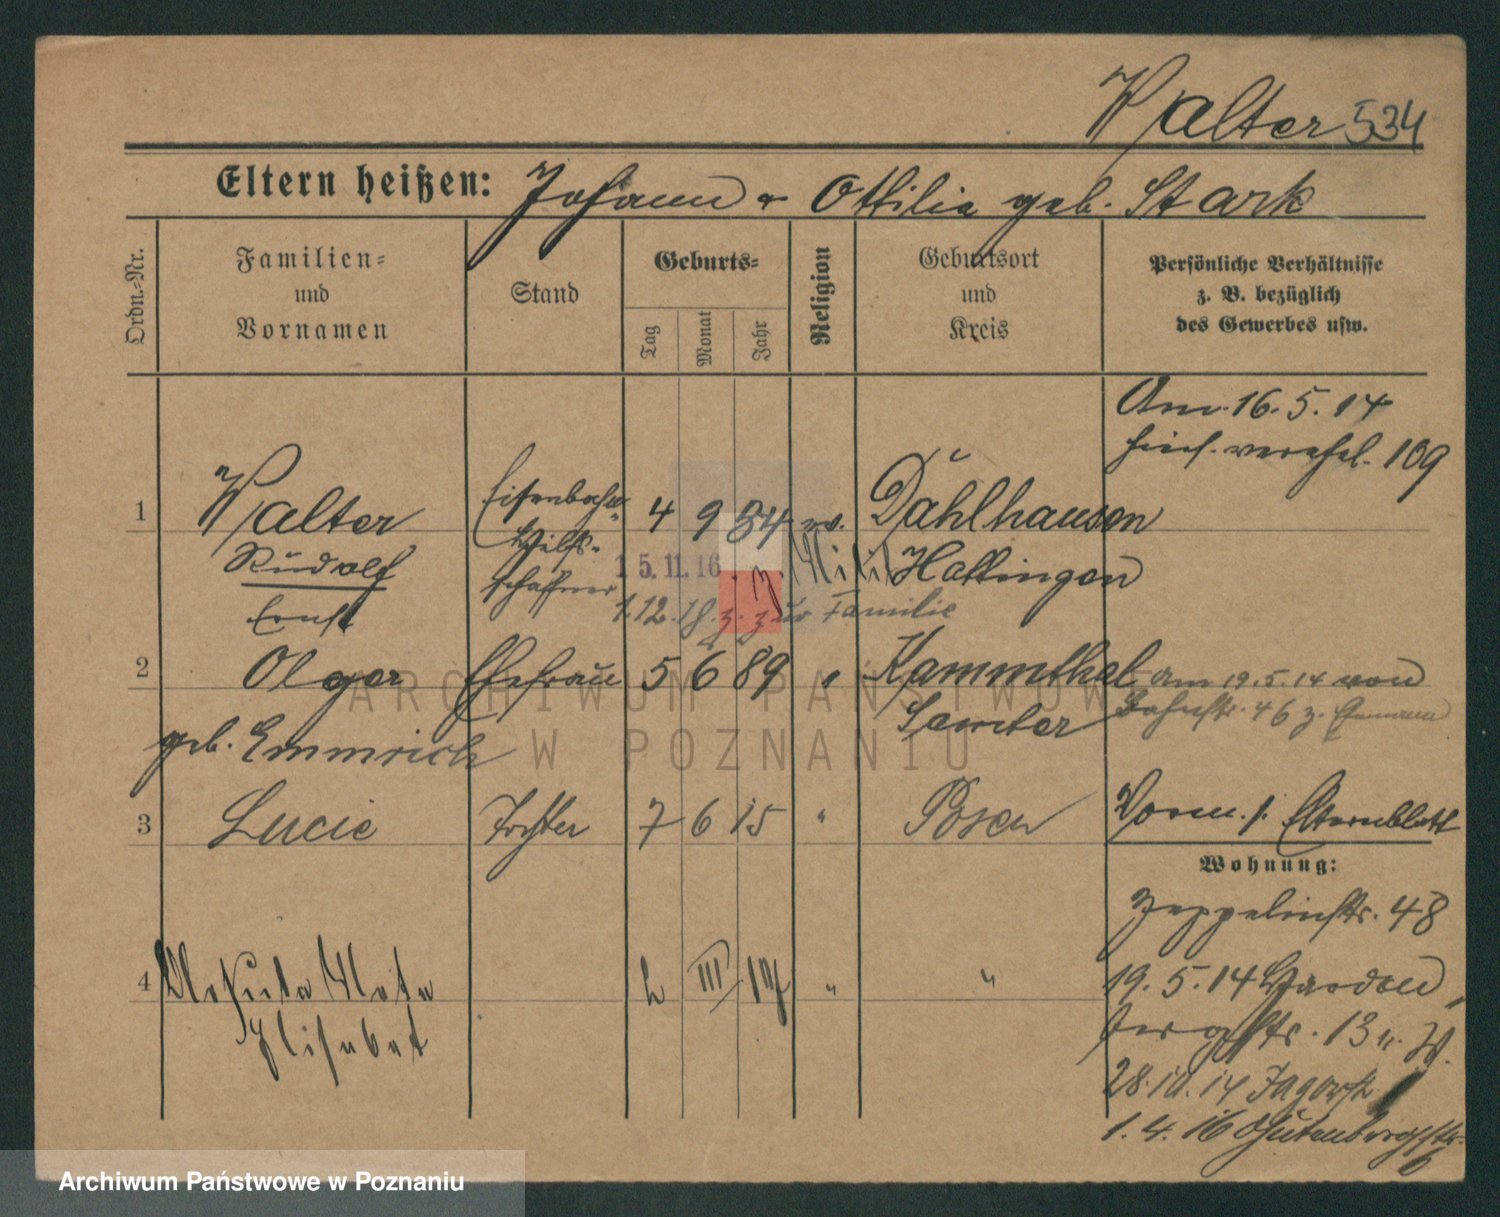 Walter 534
Eltern heißen: Johann & Ottilie geb. Stark
Ordn.-Nr.
Familien-
und
Vornamen
Stand
Geburts-
Tag
Monat
Jahr
Religion
Geburtsort
und
Kreis
Persönliche Verhältnisse
z. B. bezüglich
des Gewerbes usw.
Am 16. 5. 14
hies. verehel. 109
1 Walter Eisenbahn- 4 9 84 ev. Dahlhausen
Rudolf Hilfs- Hattingen
Ernst schaffner
15.11.16 z. Milit
1.12.18 z. zur Familie
2 Olga Ehefrau 5 6 89 " Kammthal am 19.5.14 von
geb. Emmrich Samter Bahnstr. 46 z. Ehemann
3 Lucie Tochter 7 6 15 " Posen Vorm. s. Elternblatt
Wohnung:
Zeppelinstr. 48
4 III " "
Elisabet
19. 5. 14 Warden
bergstr. 13 b. W.
28.10.14 Jagowstr.
1. 4. 16 Gutenbergstr.
6
ARCHIWUM PAŃSTWOWE
W POZNANIU
Archiwum Państwowe w Poznaniu